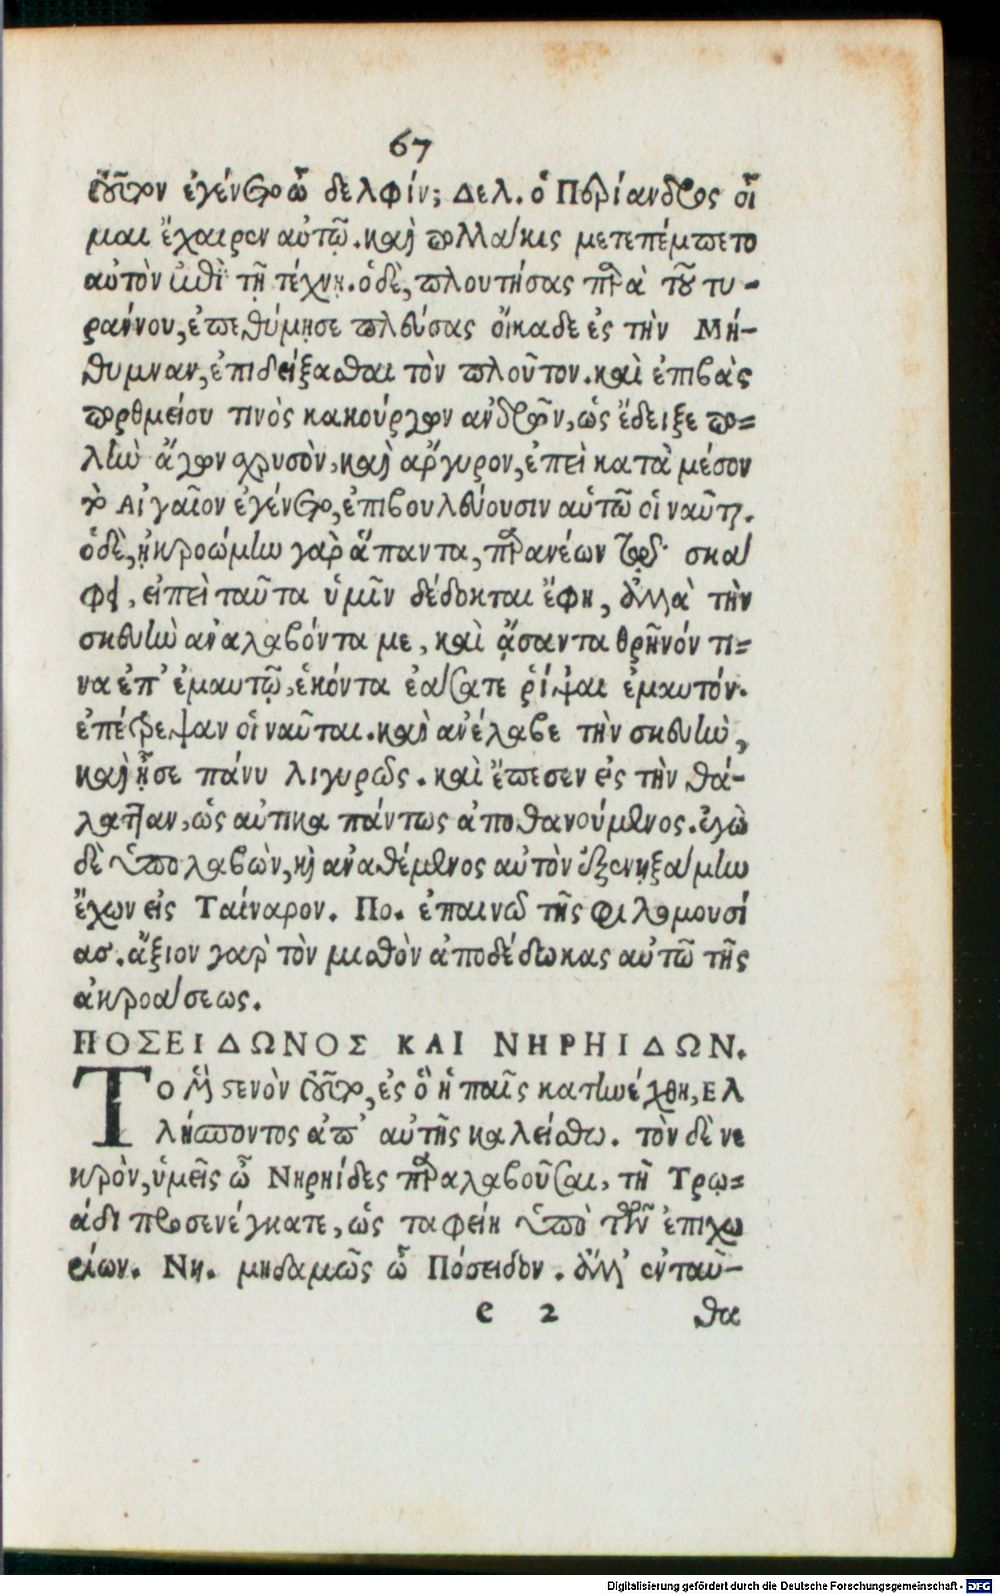 67
τοῦτον ἐγένετο ὦ δελφίν; Δελ. ὁ Περίανδρος οἶ
μαι ἔχαιρεν αὐτῷ. καὶ πολλάκις μετεπέμπετο
αὐτὸν ἐπὶ τῇ τέχνῃ. ὁ δὲ, πλουτήσας παρὰ τοῦ τυ-
ράννου, ἐπεθύμησε πλεύσας οἴκαδε ἐς τὴν Μή-
θυμναν, ἐπιδείξασθαι τὸν πλοῦτον. καὶ ἐπιβὰς
πορθμείου τινὸς κακούργων ἀνδρῶν, ὡς ἔδειξε πο=
λὺν ἄγων χρυσὸν, καὶ ἄργυρον, ἐπεὶ κατὰ μέσον
τὸ Αἰγαῖον ἐγένετο, ἐπιβουλεύουσιν αὐτῶ οἱ ναῦται.
ὁ δὲ, ἠκροώμην γὰρ ἅπαντα, παρανέων τῷ σκά
φει, εἰπεὶ ταῦτα ὑμῖν δέδοκται ἔφη, ἀλλὰ τὴν
σκευὴν ἀναλαβόντα με, καὶ ᾄσαντα θρῆνόν τι=
να ἐπ' ἐμαυτῷ, ἑκόντα ἐάσατε ῥίψαι ἐμαυτόν.
ἐπέτρεψαν οἱ ναῦται. καὶ ἀνέλαβε τὴν σκευὴν,
καὶ ᾖσε πάνυ λιγυρῶς. καὶ ἔπεσεν εἰς τὴν θά-
λατταν, ὡς αὐτίκα πάντως ἀποθανούμενος. ἐγὼ
δὲ ὑπολαβὼν, καὶ ἀναθέμενος αὐτὸν ἐξενηξάμην
ἔχων εἰς Ταίναρον. Πο. ἐπαινῶ τῆς φιλομουσί
ας. ἄξιον γὰρ τὸν μισθὸν ἀποδέδωκας αὐτῶ τῆς
ἀκροάσεως.
ΠΟΣΕΙΔΩΝΟΣ ΚΑΙ ΝΗΡΗΙΔΩΝ.
Το μὲν στενὸν τοῦτο, ἐς ὃ ἡ παῖς κατηνέχθη, Ελ
λήσποντος ἀπ' αὐτῆς καλείσθω. τὸν δὲ νε
κρὸν, ὑμεῖς ὦ Νηρηίδες παραλαβοῦσαι, τῆ Τρῳ=
άδι προσενέγκατε, ὡς ταφείη ὑπὸ τῶν ἐπιχω
ρίων. Νη. μηδαμῶς ὦ Πόσειδον. ἀλλ' ἐνταῦ-
e 2 θα
Digitalisierung gefördert durch die Deutsche Forschungsgemeinschaft - DFG